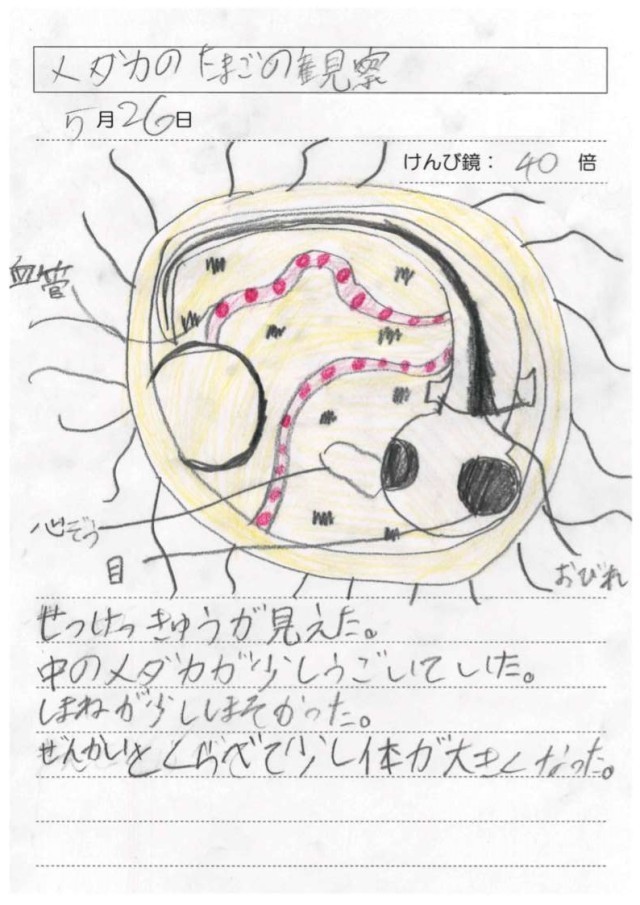 メダカのたまごの観察
5月26日
けんび鏡： 40 倍
血管
心ぞう
目
おびれ
せっけっきゅうが見えた。
中のメダカが少しうごいていた。
ほねが少しほそかった。
ぜんかいとくらべて少し体が大きくなった。